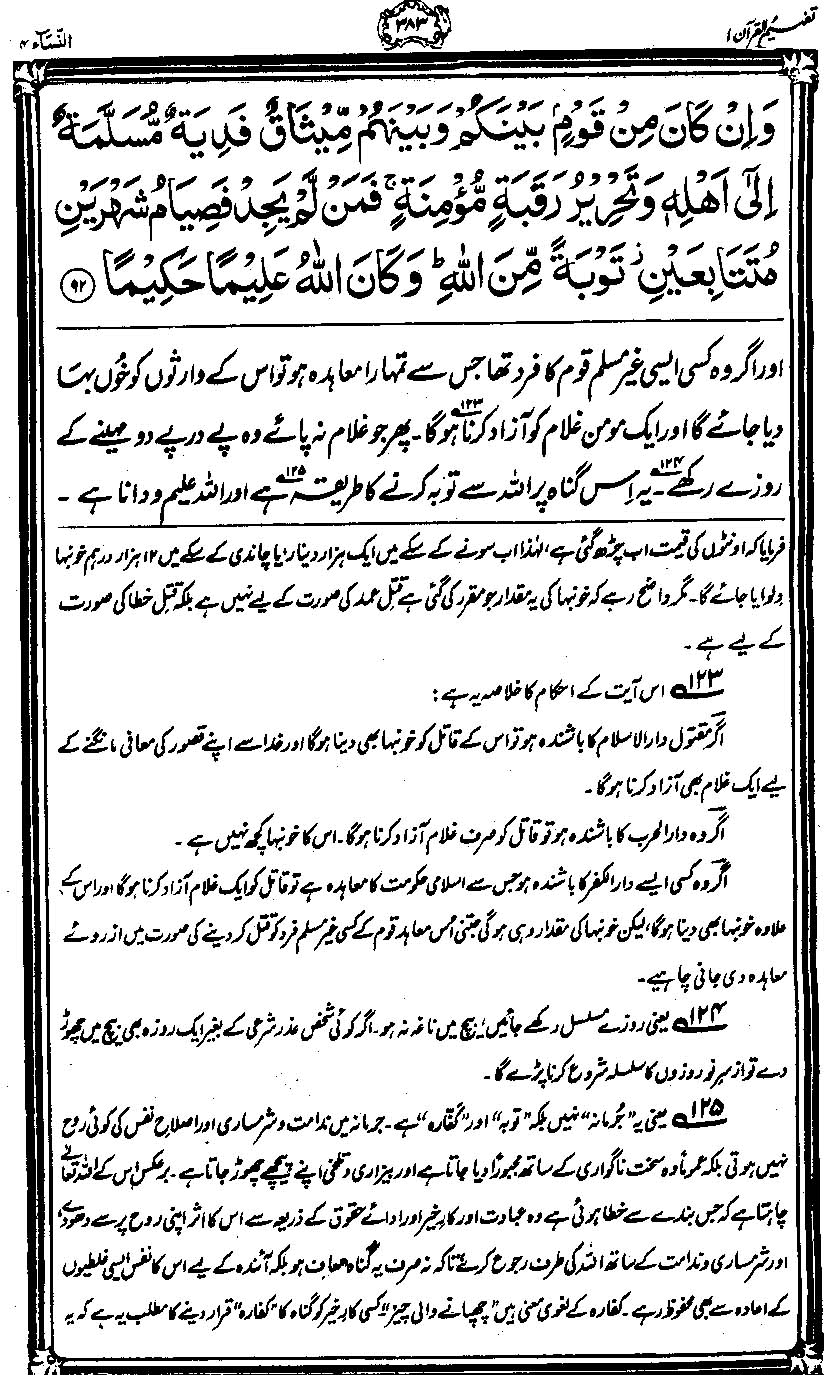 تفہیم القرآن ۱
۳۸۳
النّسآء ۴
وَاِنْ كَانَ مِنْ قَوْمٍۭ بَيْنَكُمْ وَبَيْنَهُمْ مِّيْثَاقٌ فَدِيَةٌ مُّسَلَّمَةٌ
اِلٰٓى اَهْلِهٖ وَتَحْرِيْرُ رَقَبَةٍ مُّؤْمِنَةٍ ۚ فَمَنْ لَّمْ يَجِدْ فَصِيَامُ شَهْرَيْنِ
مُتَتَابِعَيْنِ ؗ تَوْبَةً مِّنَ اللّٰهِ ؕ وَكَانَ اللّٰهُ عَلِيْمًا حَكِيْمًا ۹۲
اور اگر وہ کسی ایسی غیر مسلم قوم کا فرد تھا جس سے تمہارا معاہدہ ہو تو اس کے وارثوں کو خُوں بہا
دیا جائے گا اور ایک مومن غلام کو آزاد کرنا ہوگا۱۲۳۔ پھر جو غلام نہ پائے وہ پے در پے دو مہینے کے
روزے رکھے۱۲۴۔ یہ اِس گناہ پر اللہ سے توبہ کرنے کا طریقہ ہے۱۲۵ اور اللہ علیم و دانا ہے۔
فرمایا کہ اونٹوں کی قیمت اب چڑھ گئی ہے، لہٰذا اب سونے کے سکے میں ایک ہزار دینار، یا چاندی کے سکے میں ۱۲ ہزار درہم خونبہا
دلوایا جائے گا۔ مگر واضح رہے کہ خونبہا کی یہ مقدار جو مقرر کی گئی ہے قتل عمد کی صورت کے لیے نہیں ہے بلکہ قتلِ خطا کی صورت
کے لیے ہے۔
۱۲۳ اس آیت کے احکام کا خلاصہ یہ ہے:
اگر مقتول دارالاسلام کا باشندہ ہو تو اس کے قاتل کو خونبہا بھی دینا ہوگا اور خدا سے اپنے قصور کی معافی مانگنے کے
لیے ایک غلام بھی آزاد کرنا ہوگا۔
اگر وہ دارالحرب کا باشندہ ہو تو قاتل کو صرف غلام آزاد کرنا ہوگا۔ اس کا خونبہا کچھ نہیں ہے۔
اگر وہ کسی ایسے دارالکفر کا باشندہ ہو جس سے اسلامی حکومت کا معاہدہ ہے تو قاتل کو ایک غلام آزاد کرنا ہوگا اور اس کے
علاوہ خونبہا بھی دینا ہوگا، لیکن خونبہا کی مقدار وہی ہوگی جتنی اُس معاہد قوم کے کسی غیر مسلم فرد کو قتل کر دینے کی صورت میں از روئے
معاہدہ دی جانی چاہیے۔
۱۲۴ یعنی روزے مسلسل رکھے جائیں، بیچ میں ناغہ نہ ہو۔ اگر کوئی شخص عذر شرعی کے بغیر ایک روزہ بھی بیچ میں چھوڑ
دے تو از سرِ نو روزوں کا سلسلہ شروع کرنا پڑے گا۔
۱۲۵ یعنی یہ ”جُرمانہ“ نہیں بلکہ ”توبہ“ اور ”کفّارہ“ ہے۔ جرمانہ میں ندامت و شرمساری اور اصلاح نفس کی کوئی روح
نہیں ہوتی بلکہ عموماً وہ سخت ناگواری کے ساتھ مجبوراً دیا جاتا ہے اور بیزاری و تلخی اپنے پیچھے چھوڑ جاتا ہے۔ برعکس اِس کے اللہ تعالیٰ
چاہتا ہے کہ جس بندے سے خطا ہوئی ہے وہ عبادت اور کارِ خیر اور ادائے حقوق کے ذریعہ سے اس کا اثر اپنی روح پر سے دھو دے،
اور شرمساری و ندامت کے ساتھ اللہ کی طرف رجوع کرے، تاکہ نہ صرف یہ گناہ معاف ہو بلکہ آئندہ کے لیے اس کا نفس ایسی غلطیوں
کے اعادہ سے بھی محفوظ رہے۔ کفارہ کے لغوی معنی ہیں ”چھپانے والی چیز“۔ کسی کارِ خیر کو گناہ کا ”کفارہ“ قرار دینے کا مطلب یہ ہے کہ یہ